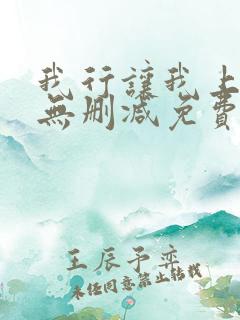 我行讓我上
無刪減免費
王辰予奕
未经同意禁止转载